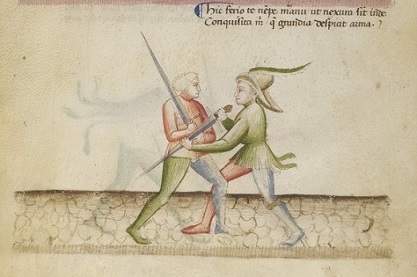 Hic ferio te nẽpe manu ut nexura sit inde
Conquisita m̃ q̃ grandia despiciat arma.